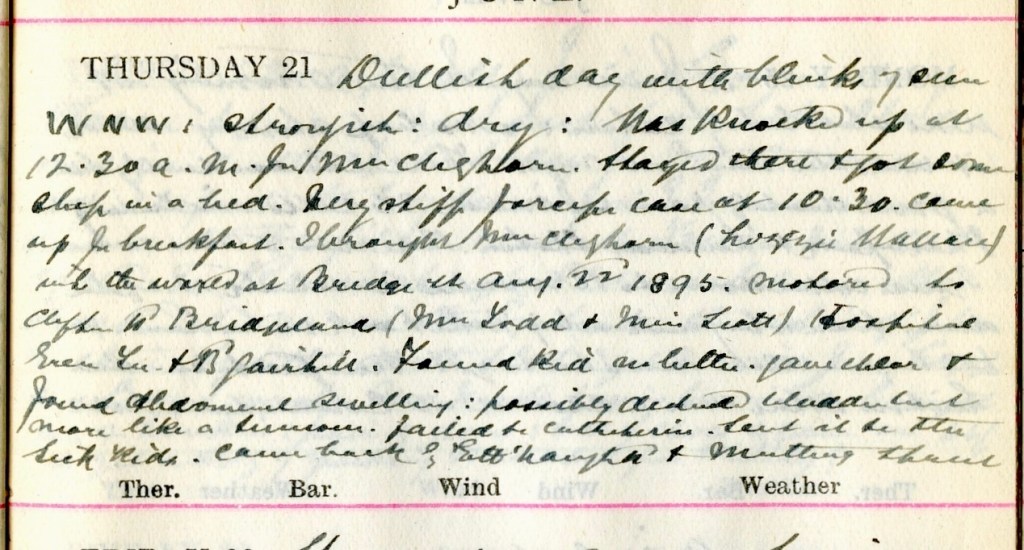 JUNE.
THURSDAY 21 Dullish day with blinks of sun
WNW: strongish: dry: Was Knocked up at
12.30 a.m. for Mrs Cleghorn. Stayed there & got some
sleep in a bed. Very stiff forceps case at 10.30. Came
up for breakfast. I brought Mrs Cleghorn ( Wallace)
into the world at Bridge St Aug. 1895. Motored to
Bridgelands (Mrs Todd & Miss Scott) Hospital
Fairhill. Found Kid no better. gave chlor &
found abdominal swelling: possibly distended bladder but
more like a tumour. failed to catheterise. Sent it to the
Sick Kids. Came back by &
Ther. Bar. Wind Weather